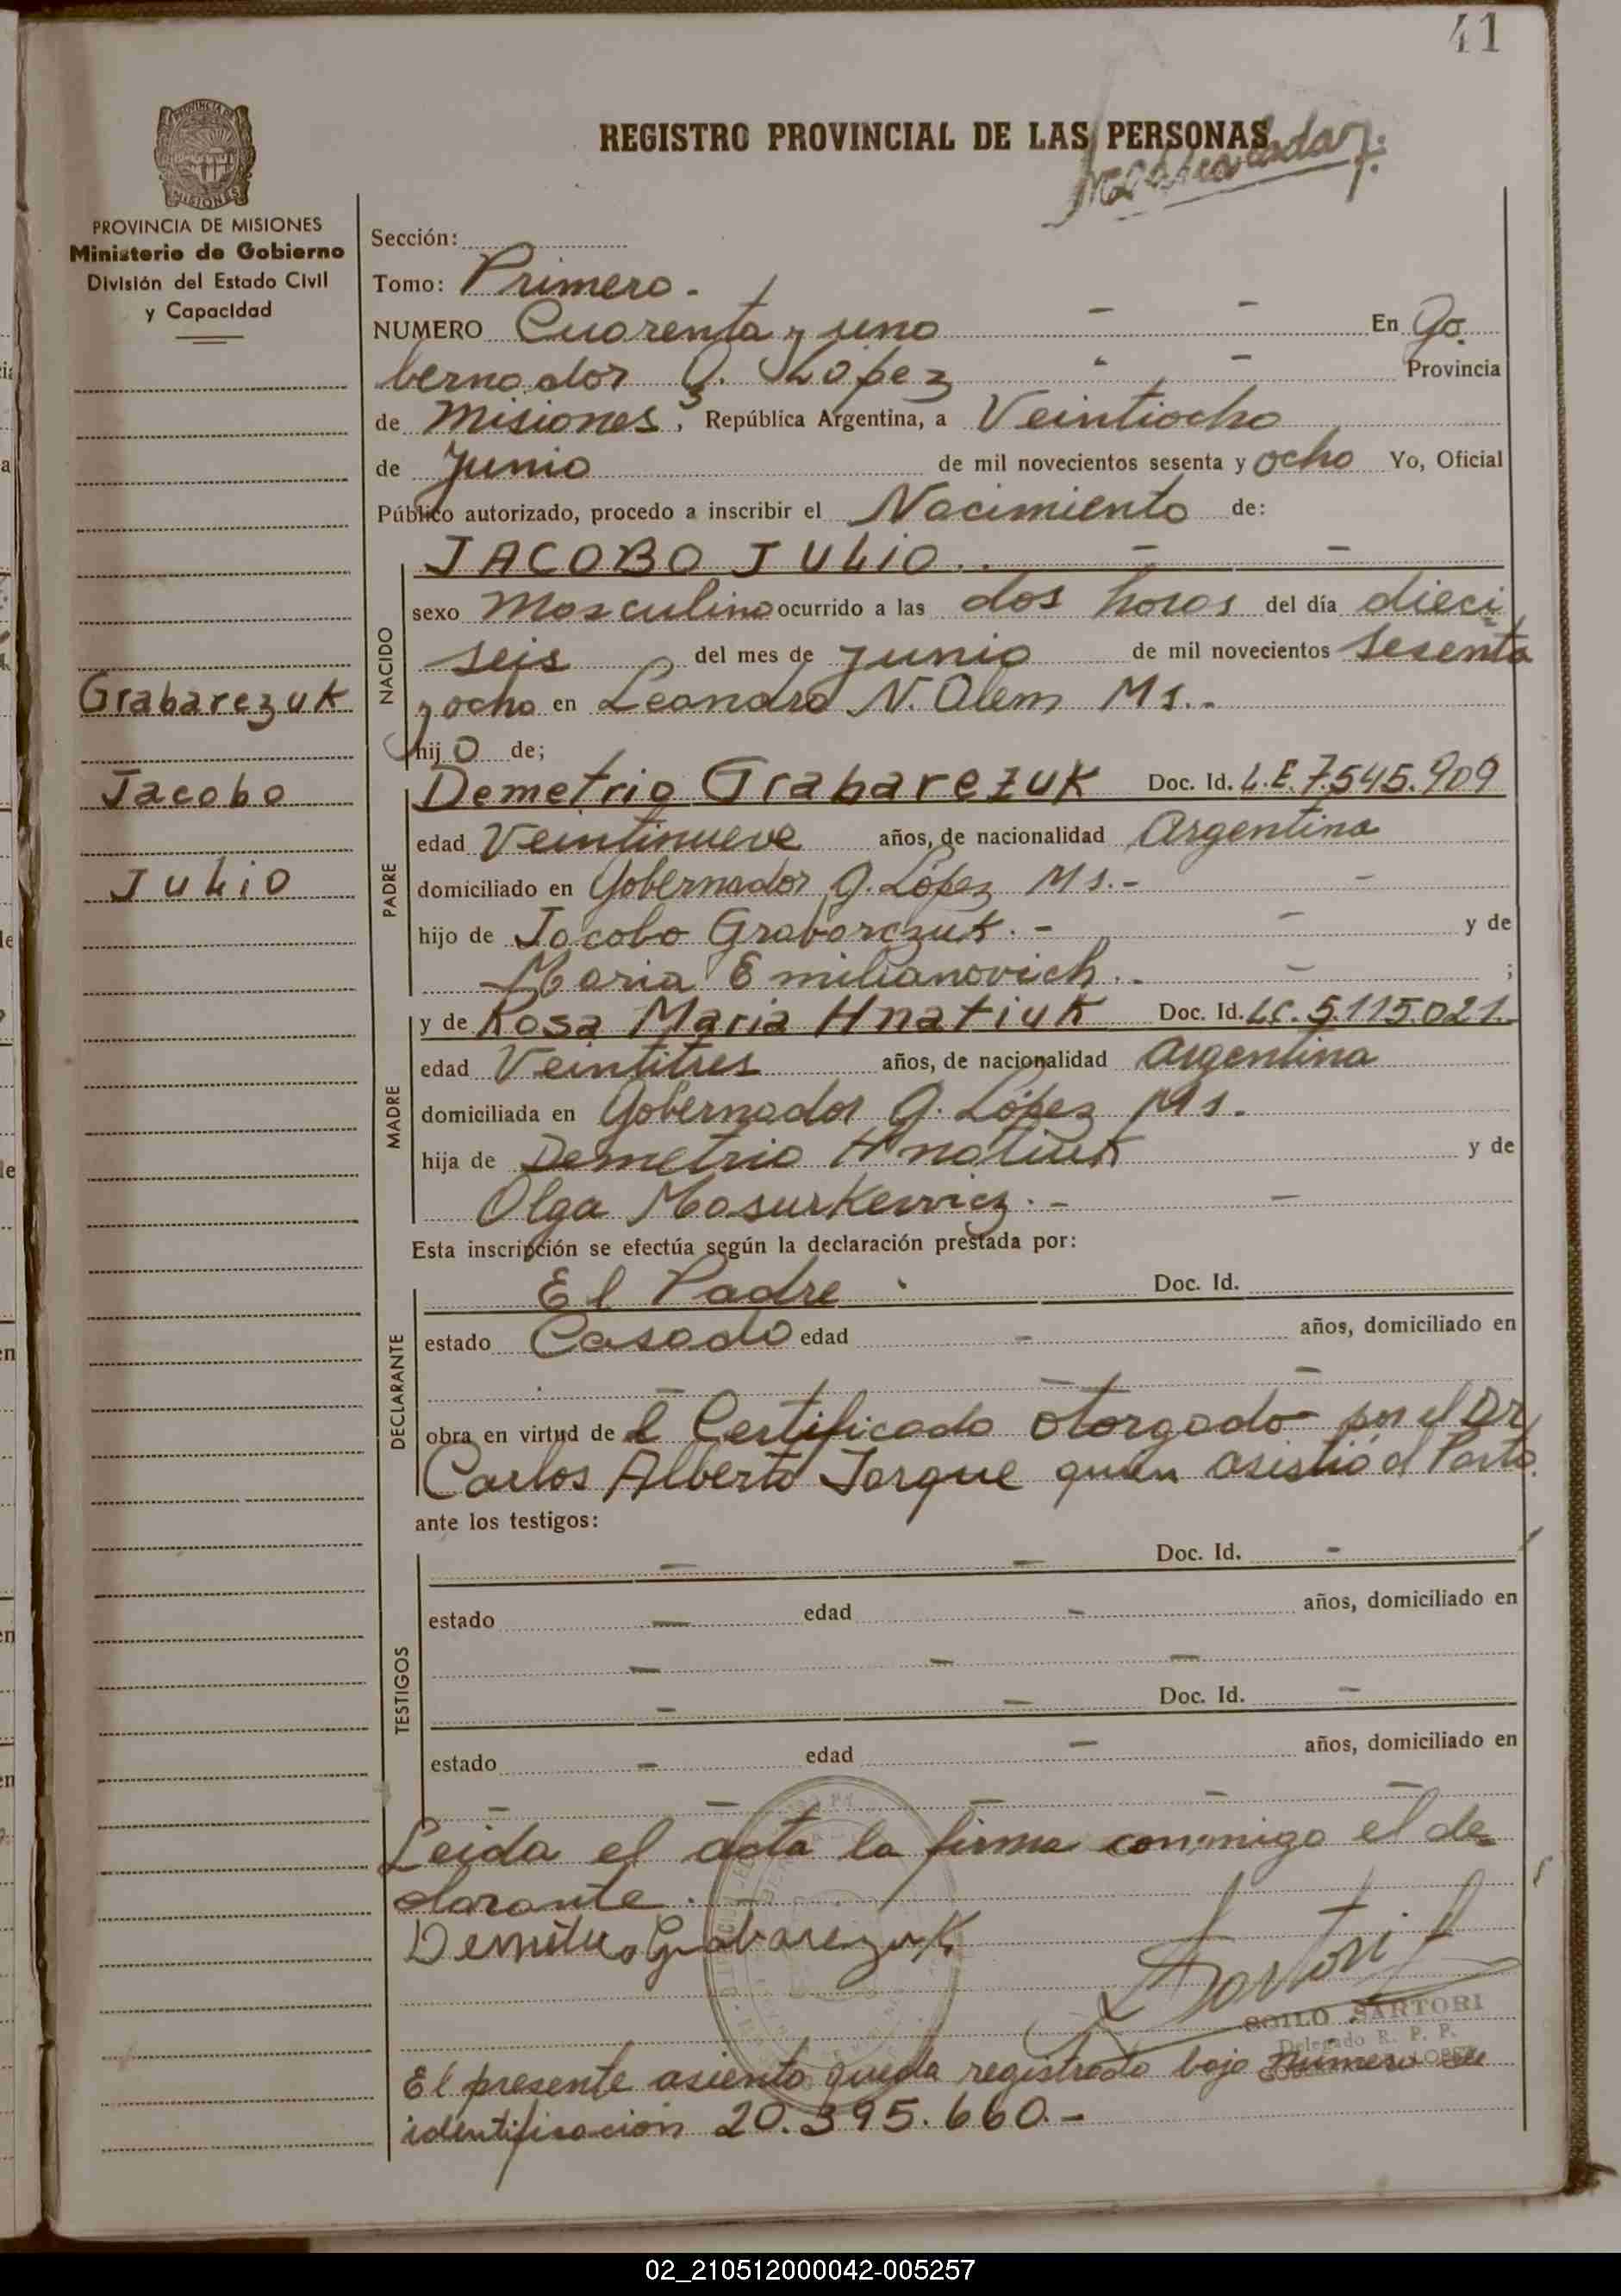 41
REGISTRO PROVINCIAL DE LAS PERSONAS
PROVINCIA DE MISIONES
Ministerio de Gobierno
División del Estado Civil
y Capacidad
Sección:
Tomo: Primero.-
NUMERO Cuarenta y uno - - En Go
bernador J. López - Provincia
de Misiones, República Argentina, a Veintiocho
de Junio de mil novecientos sesenta y ocho Yo, Oficial
Público autorizado, procedo a inscribir el Nacimiento de:
JACOBO JULIO.. - -
NACIDO
sexo Masculino ocurrido a las dos horas del día dieci
seis del mes de junio de mil novecientos sesenta
y ocho en Leandro N. Alem Ms.-
hijo de;
Grabarczuk
Jacobo
Julio
PADRE
Demetrio Grabarczuk Doc. Id. L.E.7.545.909
edad Veintinueve años, de nacionalidad Argentina
domiciliado en Gobernador J. López Ms.- -
hijo de Jacobo Grabarczuk.- - y de
Maria Emilianovich.- - ;
MADRE
y de Rosa Maria Hnatiuk Doc. Id. LC. 5.115.021.
edad Veintitres años, de nacionalidad Argentina
domiciliada en Gobernador J. López Ms.
hija de Demetrio Hnatiuk y de
Olga Mosurkewicz.- -
Esta inscripción se efectúa según la declaración prestada por:
DECLARANTE
El Padre Doc. Id.
estado Casado edad - años, domiciliado en
- - -
obra en virtud del Certificado otorgado por el Dr
Carlos Alberto Jorque quien asistió el Parto.
ante los testigos:
TESTIGOS
- - Doc. Id. -
estado - edad - años, domiciliado en
- - -
- - Doc. Id. -
estado - edad - años, domiciliado en
- - - - -
Leida el acta la firma conmigo el de=
clarante.-
Demetrio Grabarczuk
Sartori
SOILO SARTORI
Delegado R. P. P.
El presente asiento queda registrado bajo número de
identificación 20.395.660.-
02_210512000042-005257